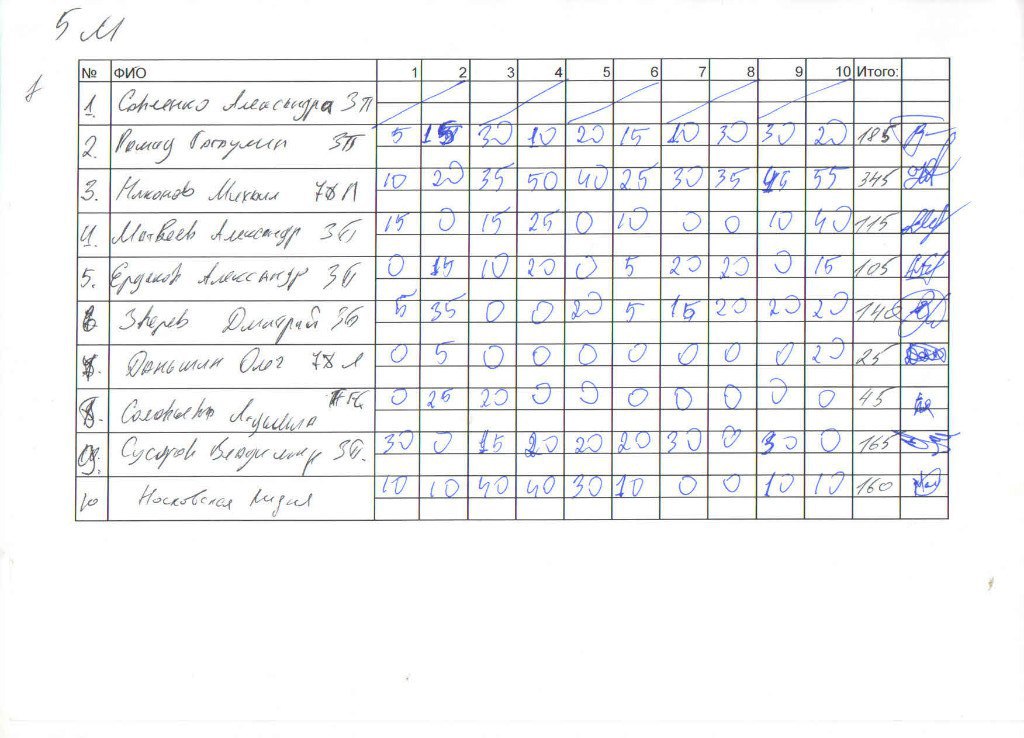 5 М
№ ФИО 1 2 3 4 5 6 7 8 9 10 Итого:
1. Александра 3П
2. 3П 5 15 30 10 20 15 10 30 30 20 185
3. Никонов Михаил 7 Л 10 20 35 50 40 25 30 35 45 55 345
4. Матвеев Александр 3П 15 0 15 25 0 10 0 0 10 40 115
5. Ердаков Александр 3П 0 15 10 20 0 5 20 20 0 15 105
6 Зверев Дмитрий 3Б 5 35 0 0 20 5 15 20 20 20 140
7. Даньшин Олег 7 Л 0 5 0 0 0 0 0 0 0 20 25
8. Людмила 0 25 20 0 0 0 0 0 0 0 45
9. Владимир 3П. 30 0 15 20 20 20 30 0 30 0 165
10 Московская Лидия 10 10 40 40 30 10 0 0 10 10 160